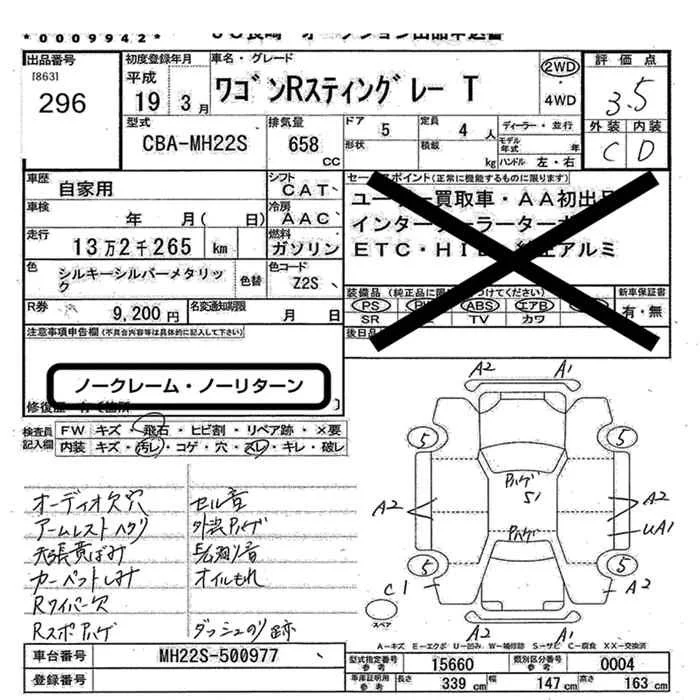 *0009942*
出品番号
[863]
296
初度登録年月
平成
19 3月
車名・グレード
ワゴンRスティングレー T
2WD
・
4WD
評価点
3.5
外装 内装
C D
型式
CBA-MH22S
排気量
658
cc
ドア
5
形状
定員
4 人
積載
kg
ディーラー・並行
モデル年式 年
ハンドル 左・右
車歴
自家用
シフト
CAT
車検
年 月( 日)
冷房
AAC
走行
13万2千265 km
燃料
ガソリン
色
シルキーシルバーメタリック
色替
色コード
Z2S
R券
9,200円
名変通知期限
月 日
セールスポイント(正常に機能するものに限ります)
ユーザー買取車・AA初出品
インタークーラーターボ
ETC・HID・純正アルミ
装備品(純正品に限
つけてください)
新車保証書
有・無
PS
ABS
エアB
SR
TV
カワ
後日品
注意事項申告欄(不具合内容等は具体的に記入して下さい)
ノークレーム・ノーリターン
修復歴
検査員
記入欄
FW キズ・飛石・ヒビ割・リペア跡・×要
内装 キズ・汚レ・コゲ・穴・スレ・キレ・破レ
オーディオ欠穴
セル音
アームレストハガリ
外装ハゲ
天張黄ばみ
カーペットしみ
オイルもれ
Rワイパー欠
Rスポハゲ
ダッシュのり跡
A2
A1
5
5
ハゲ
S1
A2
ハゲ
A2
UA1
5
5
C1
A2
スペア
A2
A1
A-キズ E-エクボ U-凹み W-補修跡 S-サビ C-腐食 XX-交換済
車台番号
MH22S-500977
登録番号
型式指定番号
参考
15660
類別区分番号
参考
0004
車庫証明用
参考
長さ
339 cm
幅
147 cm
高さ
163 cm